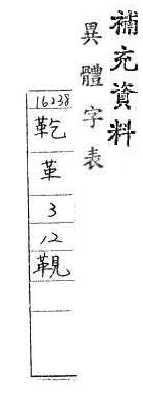 補充資料
異體字表
16238
革
3
12